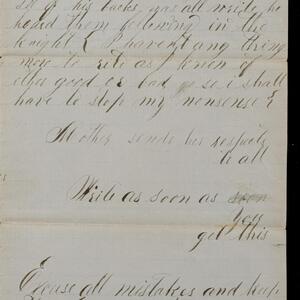 of his backs, gas all write, he
heard them bellowing in the
Knight & I havent any thing
more to rite as I know of
elses good or bad so i shall
have to stop my nonsense &
Mother sends her respects
to all
Write as soon as soon
you
get this
Excuse all mistakes and keep